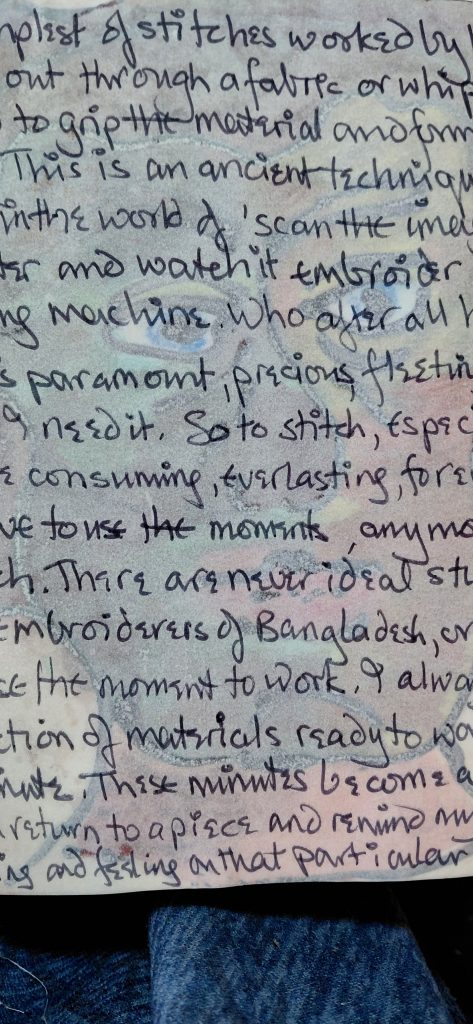 mplest of stitches worked by
out through a fabric or whip
to grip the material and form
This is an ancient technique
in the world of 'scan the imag
ter and watch it embroider
ng machine. Who after all h
s paramount, precious, fleetin
I need it. So to stitch, espec
e consuming, everlasting, fore
ve to use the moments, anymo
ch. There are never ideal stu
embroiderers of Bangladesh, or
se the moment to work. I alwa
ction of materials ready to wo
nute. These minutes become a
return to a piece and remind my
ing and feeling on that particular